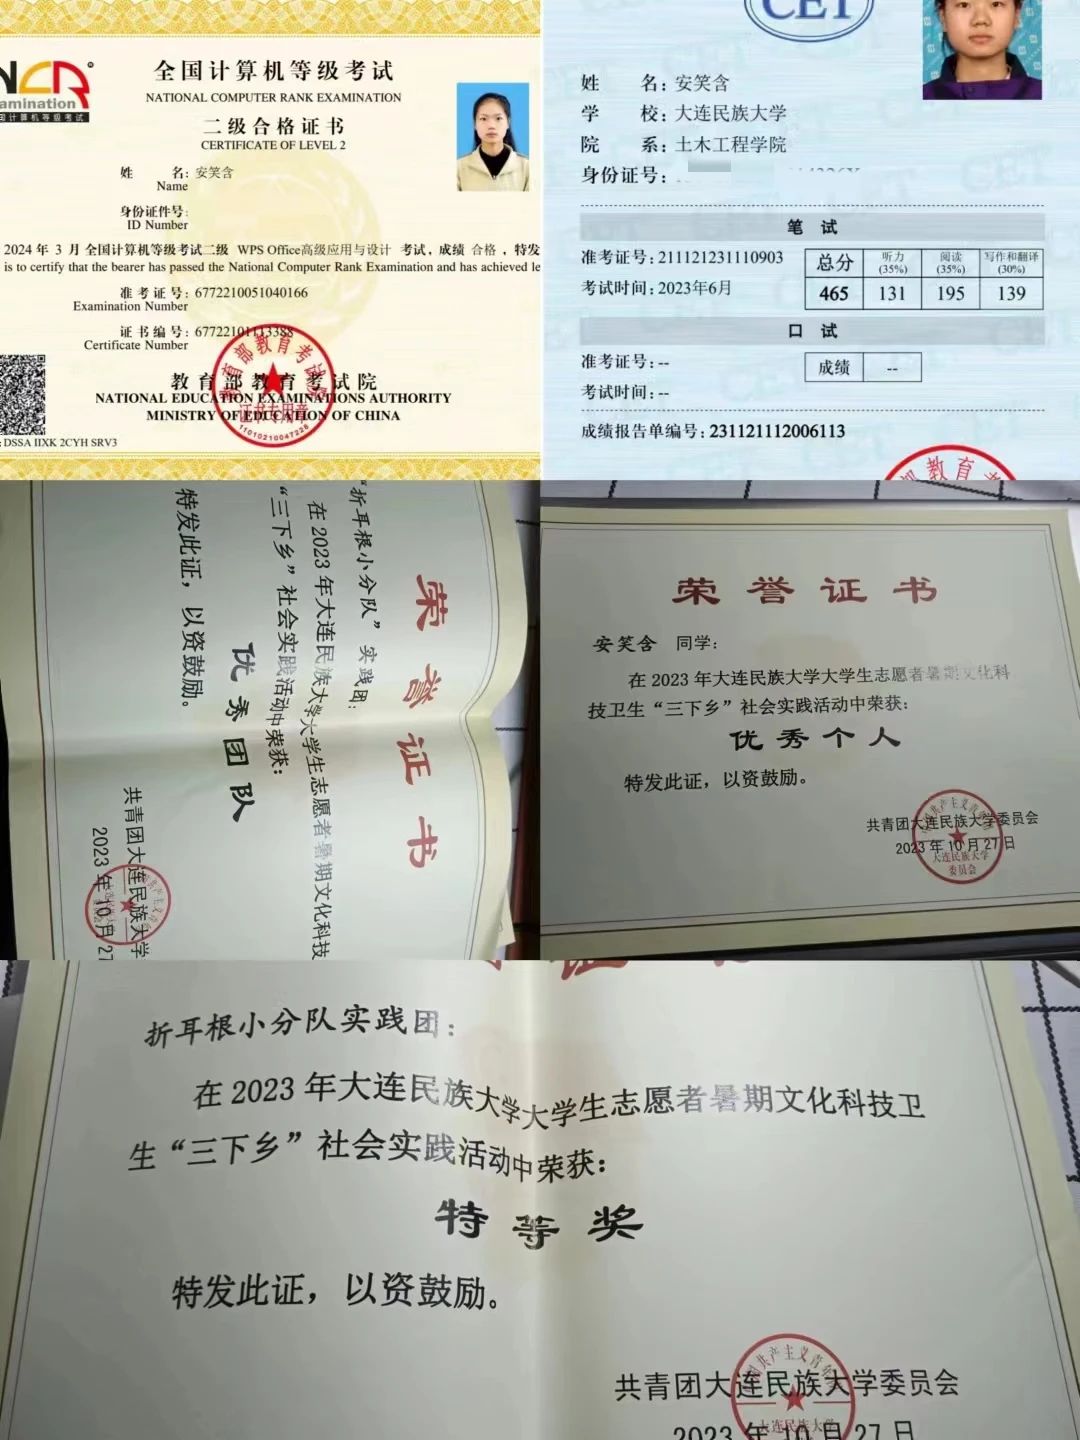 NCR
amination
国计算机等级考试
全国计算机等级考试
NATIONAL COMPUTER RANK EXAMINATION
二级合格证书
CERTIFICATE OF LEVEL 2
姓 名: 安笑含
Name
身份证件号:
ID Number
2024 年 3 月 全国计算机等级考试二级 WPS Office高级应用与设计 考试, 成绩 合格 , 特发
is to certify that the bearer has passed the National Computer Rank Examination and has achieved le
准 考 证 号: 6772210051040166
Examination Number
证 书 编 号: 67722101113388
Certificate Number
教 育 部 教 育 考 试 院
NATIONAL EDUCATION EXAMINATIONS AUTHORITY
MINISTRY OF EDUCATION OF CHINA
教育部教育考试院
证书专用章
11010210047228
: DSSA IIXK 2CYH SRV3
CET
姓 名: 安笑含
学 校: 大连民族大学
院 系: 土木工程学院
身份证号:
笔 试
准考证号: 211121231110903
考试时间: 2023年6月
总分 听力 (35%) 阅读 (35%) 写作和翻译 (30%)
465 131 195 139
口 试
准考证号: --
考试时间: --
成绩 --
成绩报告单编号: 231121112006113
部教育考
荣誉证书
“折耳根小分队”实践团:
在 2023 年大连民族大学大学生志愿者暑期文化科技
“三下乡”社会实践活动中荣获:
优秀团队
特发此证, 以资鼓励。
共青团大连民族大学
2023 年 10 月 27
荣誉证书
安笑含 同学:
在 2023 年大连民族大学大学生志愿者暑期文化科
技卫生“三下乡”社会实践活动中荣获:
优秀个人
特发此证, 以资鼓励。
共青团大连民族大学委员会
2023 年 10 月 27 日
大连民族大学
委员会
折耳根小分队实践团:
在 2023 年大连民族大学大学生志愿者暑期文化科技卫
生“三下乡”社会实践活动中荣获:
特等奖
特发此证, 以资鼓励。
共青团大连民族大学委员会
2023 年 10 月 27 日
大连民族大学